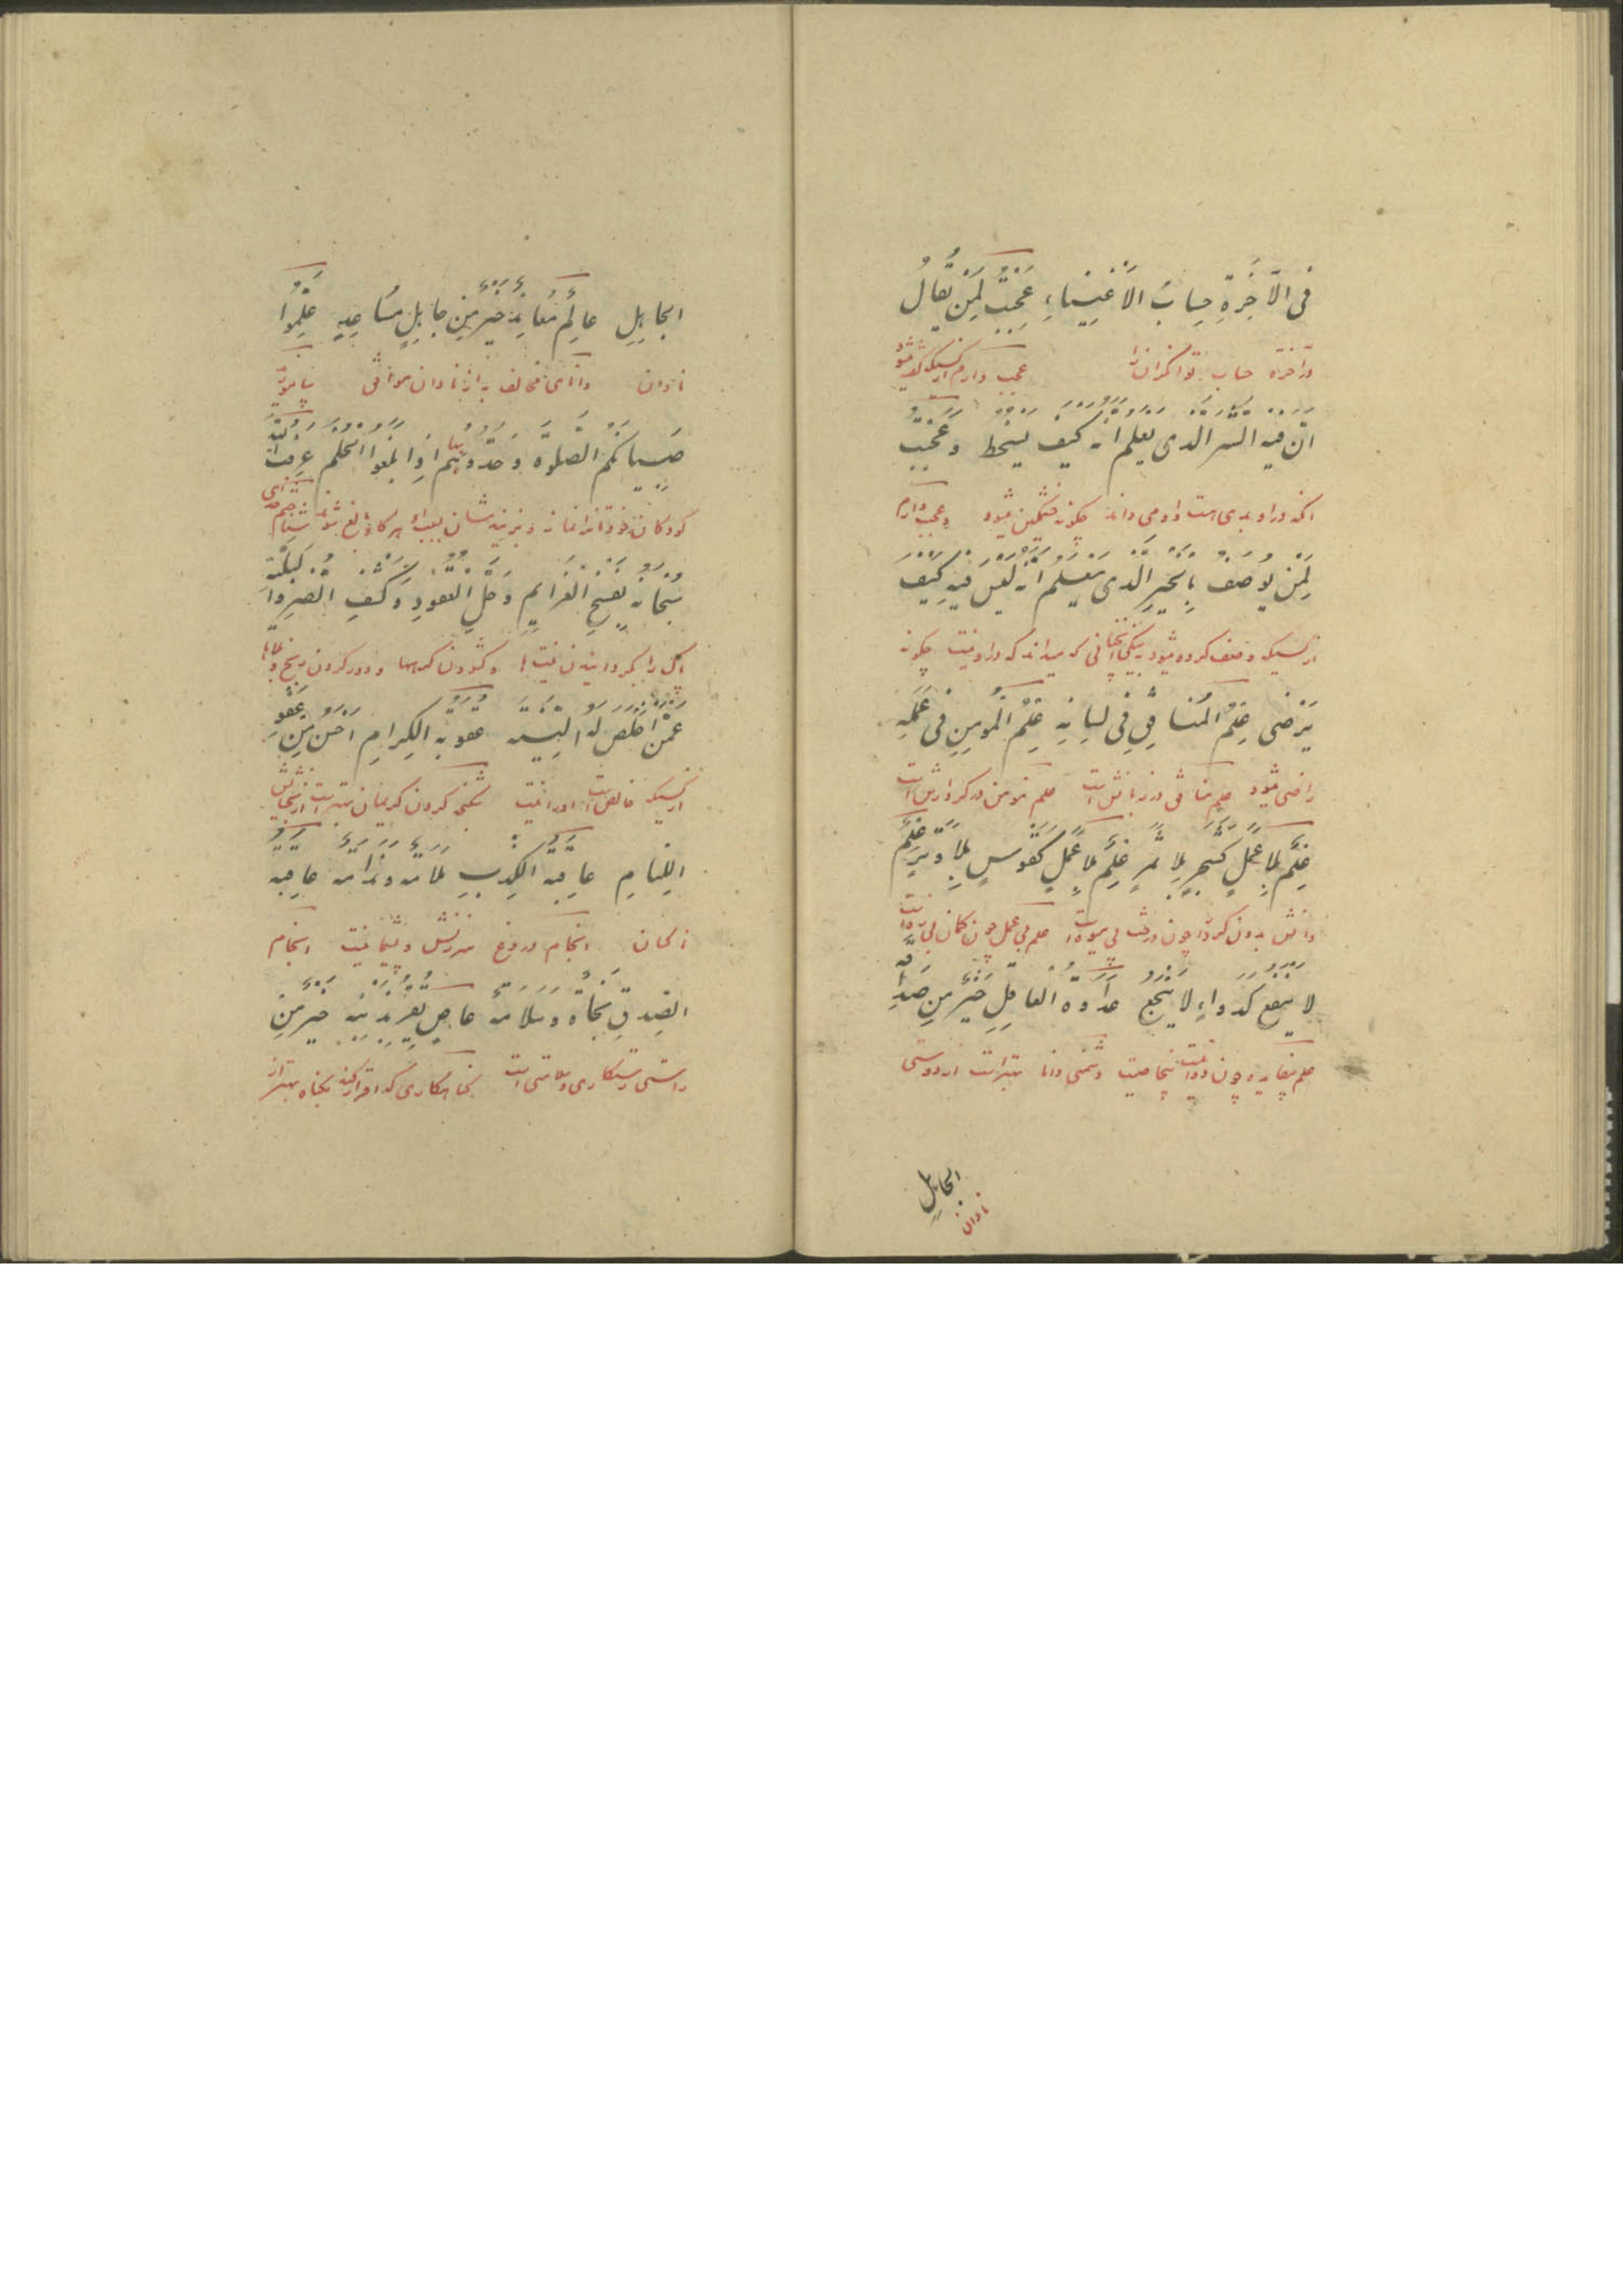 فی الآخِرَةِ حِسابُ الاَغنِیاءِ عَجِبتُ لِمَن یُقالُ
در آخرة حساب توانگران را عجب دارم از کسیکه گفته میشود
اَنَّ فیه الشَّر الذی یعلم انه کیف یسخط وَ عَجِبتُ
آنکه در او بدی است و او می داند چگونه خشمگین میشود و عجب دارم
لِمَن یوصَفُ بِالخَیرِ الَّذی یَعلَمُ اَنَّه لَیسَ فیهِ کَیفَ
از کسیکه وصف کرده میشود به نیکی که میداند که در او نیست چگونه
یَرضی عِلمُ المُنافِقِ فی لِسانِهِ عِلمُ المُومِنِ فی عَمَلِهِ
راضی میشود علم منافق در زبانش است علم مومن در کردارش است
عِلمٌ بِلا عَمَلٍ کَشَجَرٍ بِلا ثَمَرٍ عِلمٌ بِلا عَمَلٍ کَقَوسٍ بِلا وَتَرٍ عِلمٌ
دانش بدون کردار چون درخت بی میوه است علم بی عمل چون کمان بی زه است
لا یَنفَع کَدَواءٍ لا یَنجَعُ عَداوَةُ العاقِلِ خَیرٌ مِن صَداقَة
علم بیفایده چون دوائیست دشمنی دانا بهتر است از دوستی
الجاهِلِ
نادان
الجاهِلِ عالِمٌ مُعانِدٌ خَیرٌ مِن جاهِلٍ مُساعِدٍ عَلِّمُوا
نادان دانای مخالف به از نادان موافق بیاموزید
صِبیانَکُم الصَّلوة وَ خُذُوهُم بِها اِذا بَلَغُوا الحُلُمَ عَرَفتُ اللهَ
کودکان خودتانرا نماز هرگاه بالغ شوند شناختم
سُبحانَه بِفَسخِ العَزائِمِ وَ حَلِّ العُقودِ وَ کَشفِ الضُّرِ وَ البَلیَّةِ
و گشودن گرهها و دور کردن رنج و بلاها
عَمَّن اَخلَصَ لَه النِیَّة عقوبة الکِرامِ اَحسَن مِن عَفوِ
از کسیکه خالص است او را نیت کریمان بهتر است از بخشایش
اللِئامِ عاقِبَة الکِذبِ مَلامَة وَ نَدامَة عاقِبَة
ناکسان انجام دروغ سرزنش و پشیمانیست انجام
الصِدقِ نَجاةٌ وَ سَلامَة عاصٍ یُقِرُّ بِذَنبِهِ خَیرٌ مِن
راستی رستگاری و سلامتی است گناهکاری که اقرار کند بگناه بهتر از